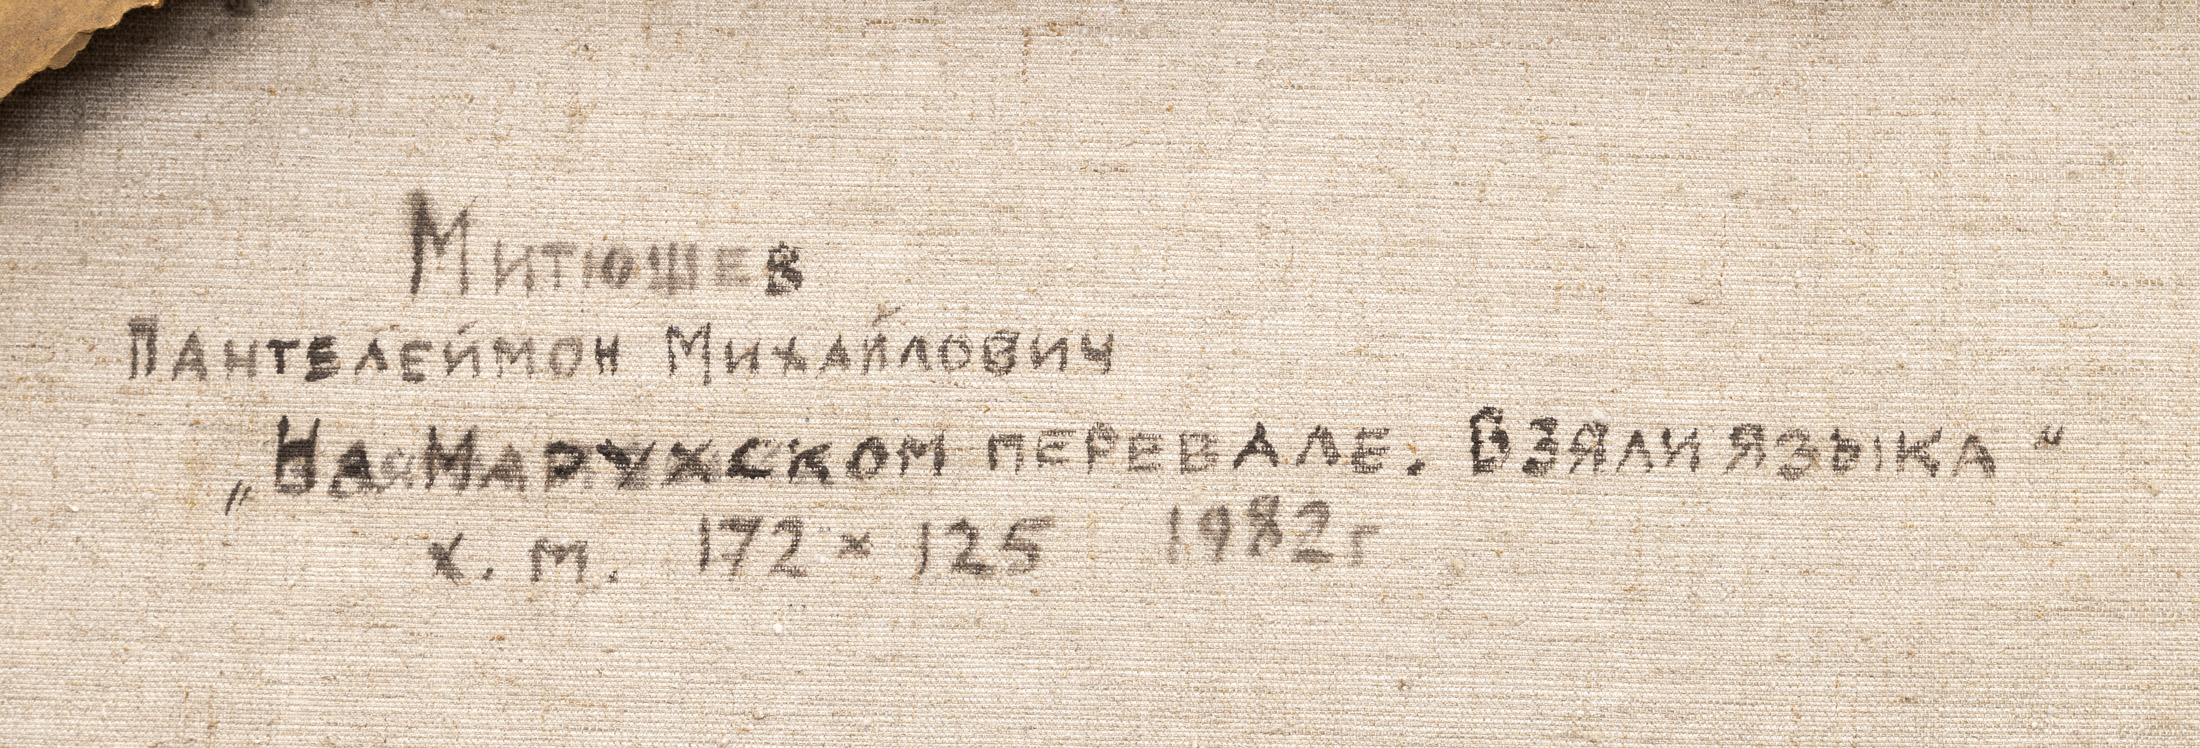 Митюшев
Пантелеймон Михайлович
„На Марухском перевале. Взяли языка“
х. м. 172 × 125 1982г